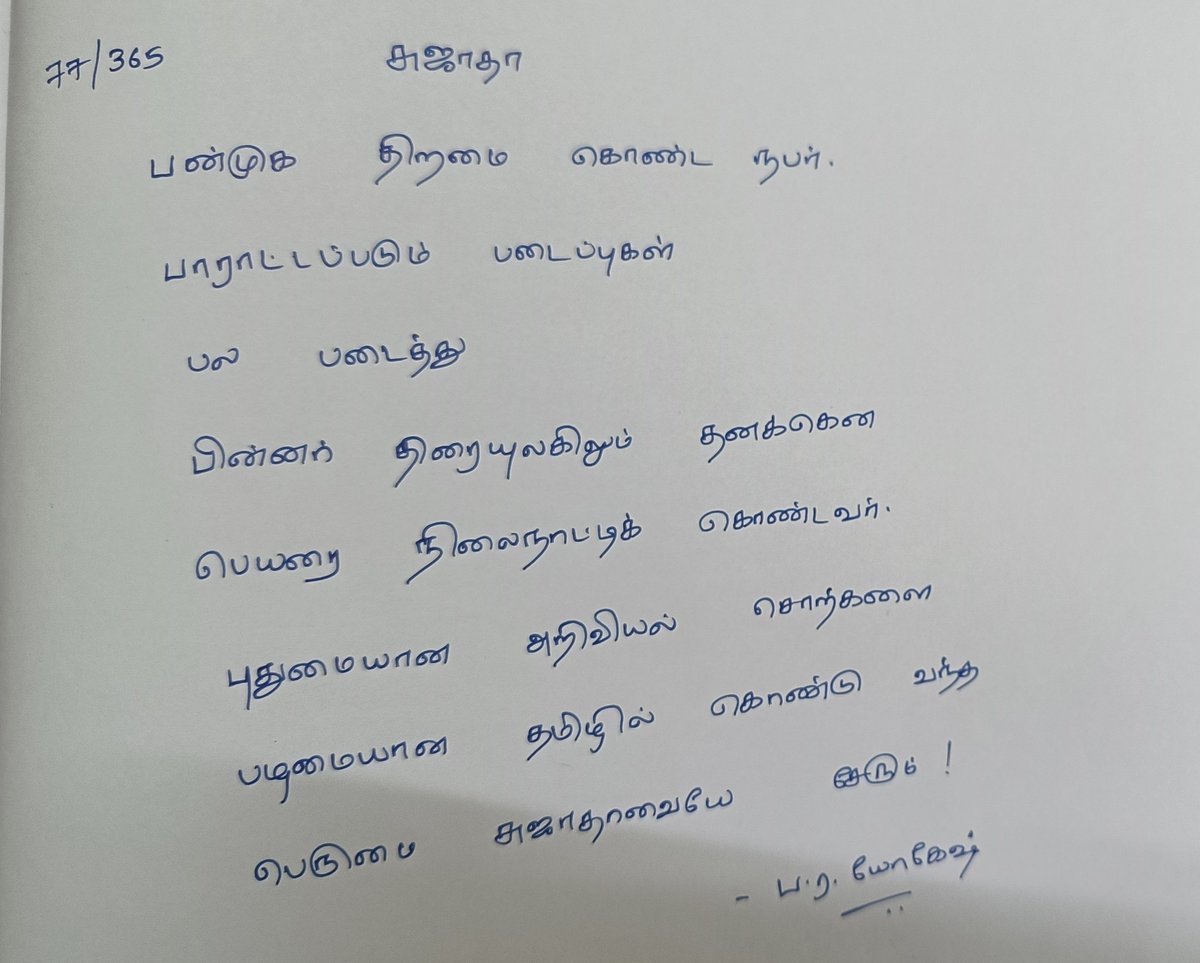 77/365 சுஜாதா
பன்முக திறமை கொண்ட நபர்.
பாராட்டப்படும் படைப்புகள்
பல படைத்து
பின்னர் திரையுலகிலும் தனக்கென
பெயரை நிலைநாட்டிக் கொண்டவர்.
புதுமையான அறிவியல் சொற்களை
படிமையான தமிழில் கொண்டு வந்த
பெருமை சுஜாதாவையே சேரும் !
- ப.ர. யோகேஷ்